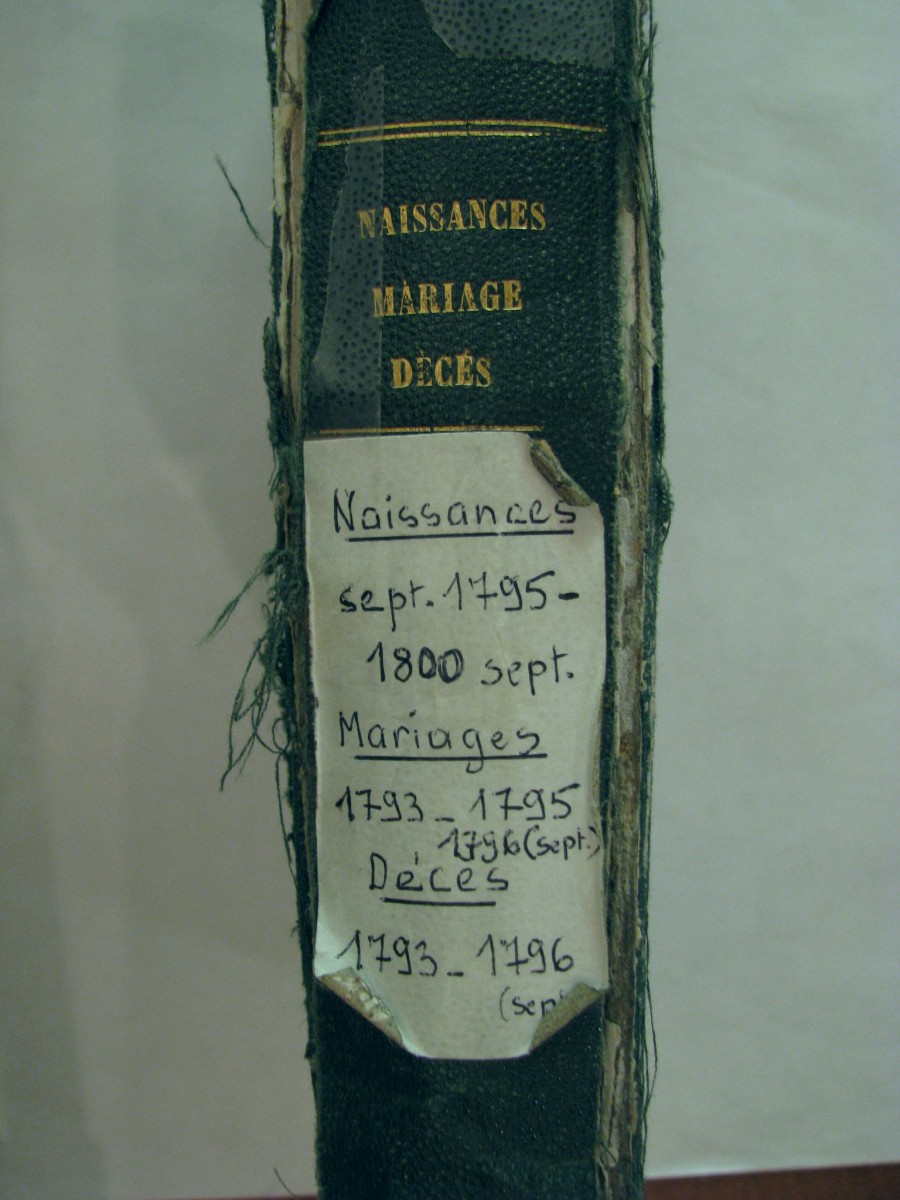 NAISSANCES
MÀRIAGE
DÈCÉS
Naissances
sept. 1795-
1800 sept.
Mariages
1793_ 1795
1796 (sept.)
Déces
1793_ 1796
(sept